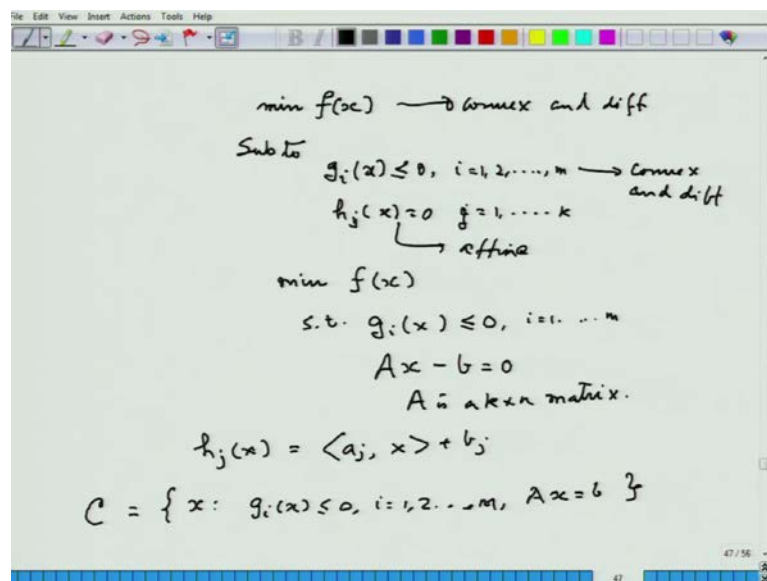 File Edit View Insert Actions Tools Help
B I
min f(x) → convex and diff
Sub to
g_i(x) ≤ 0, i = 1, 2, ....., m → convex
and diff
h_j(x) = 0 j = 1, ..... k
→ affine
min f(x)
s.t. g_i(x) ≤ 0, i = 1. ... m
Ax - b = 0
A is a k×n matrix.
h_j(x) = <a_j, x> + b_j
C = { x : g_i(x) ≤ 0, i = 1, 2 ..., m, Ax = b }
47 / 56
47